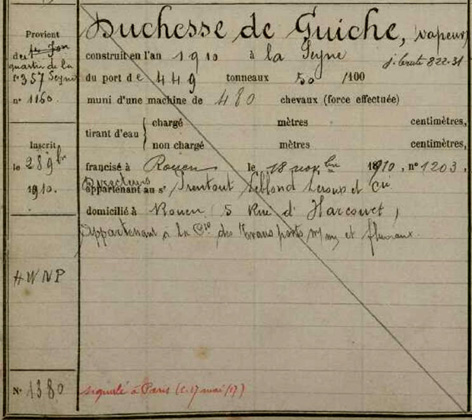 Duchesse de Guiche, vapeur
Provient
quartier de la
fo 357 Seyne
n° 1160.
construit en l'an 1910 à la Seyne
j. brute 822-31
du port de 449 tonneaux 50 /100
muni d'une machine de 480 chevaux (force effectuée)
tirant d'eau { chargé mètres centimètres,
non chargé mètres centimètres,
Inscrit
le 28 9bre
1910.
francisé à Rouen le 18 novbre 1910, n° 1203.
appartenant au sr Prentout Leblond Leroux et Cie
domicilié à Rouen, 5 Rue d'Harcourt,
Appartenant à la Cie des Transports mmes et fluviaux.
HWNP
N° 1380
signalé à Paris (l. 17 mai 17)